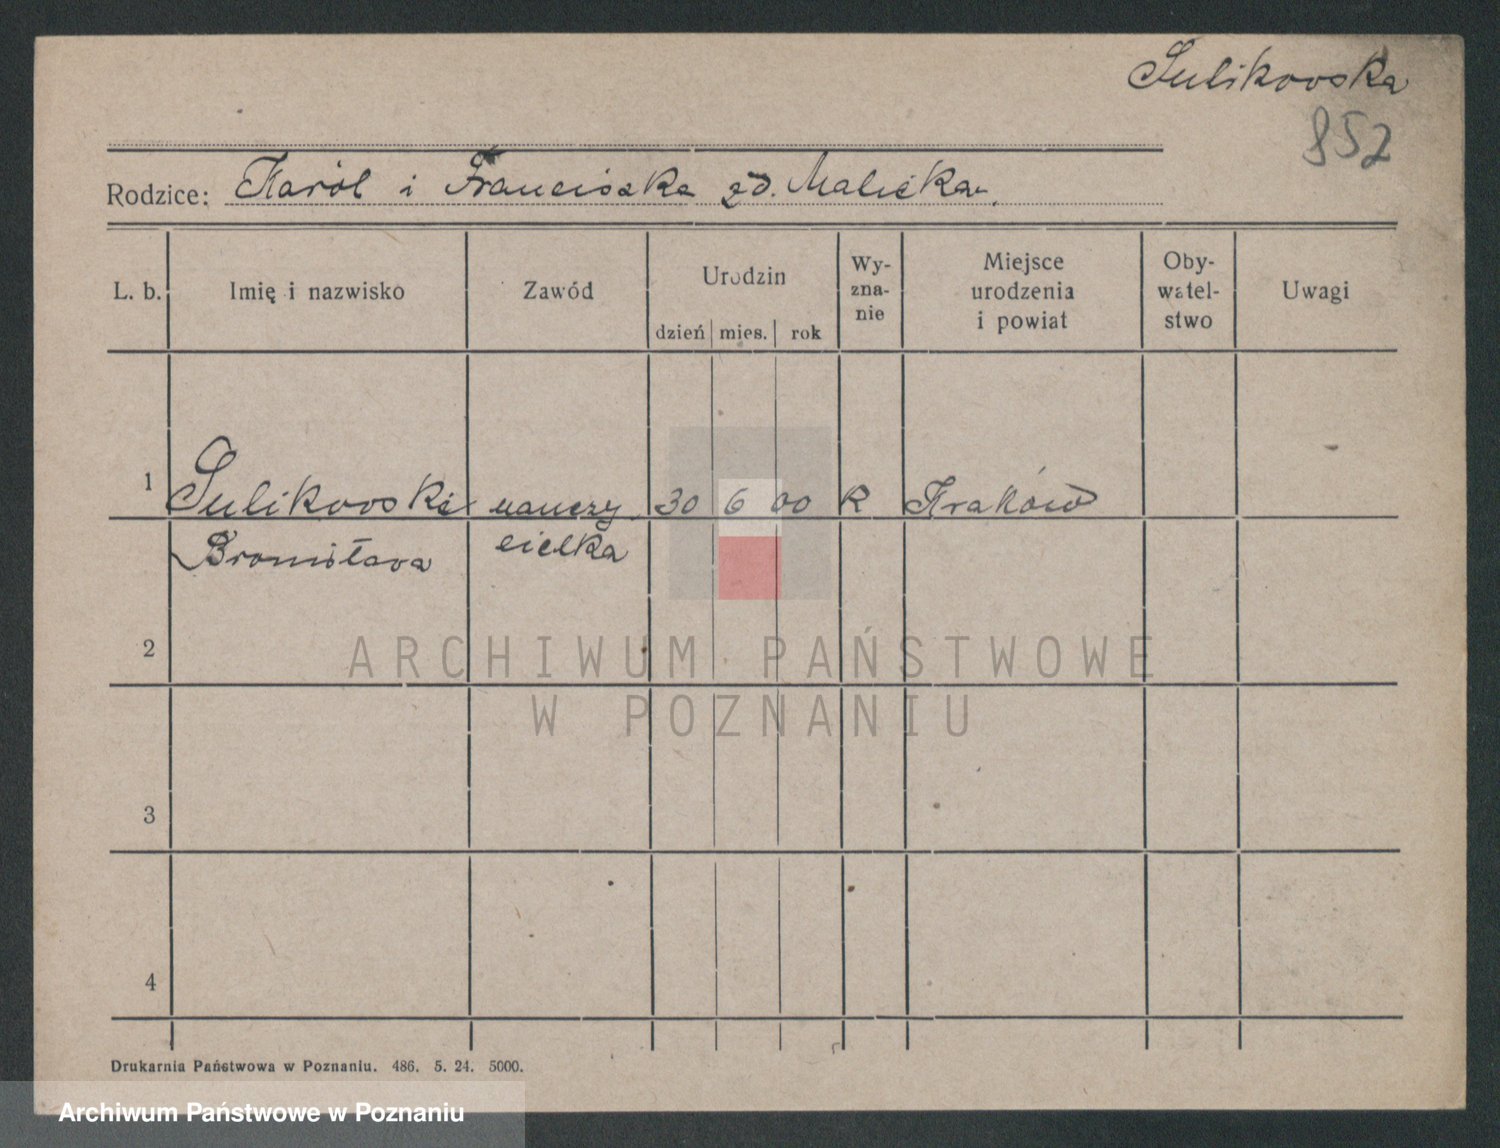 Sulikowska
852
Rodzice: Karól i Franciszka zd. Malicka.
L. b. Imię i nazwisko Zawód Urodzin dzień mies. rok Wy-zna-nie Miejsce urodzenia i powiat Oby-watel-stwo Uwagi
1 Sulikowska nauczy 30 6 00 R Kraków
Bronisława cielka
2
3
4
ARCHIWUM PAŃSTWOWE
W POZNANIU
Drukarnia Państwowa w Poznaniu. 486. 5. 24. 5000.
Archiwum Państwowe w Poznaniu